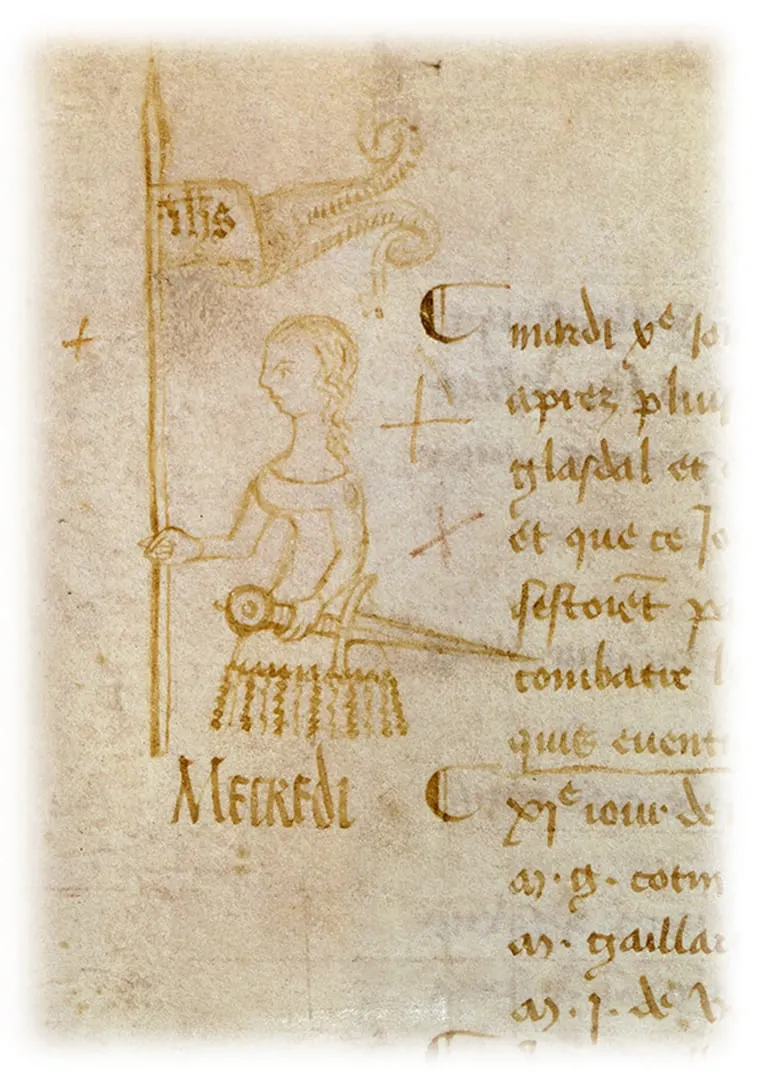 ihs
mardi xe jo
aprez plui
glasdal et
et que ce Jo
sestoiēt p
combatre l
quis event
Mecredi
xie iour de
m. g. cotin
m. gaillar
m. j. de